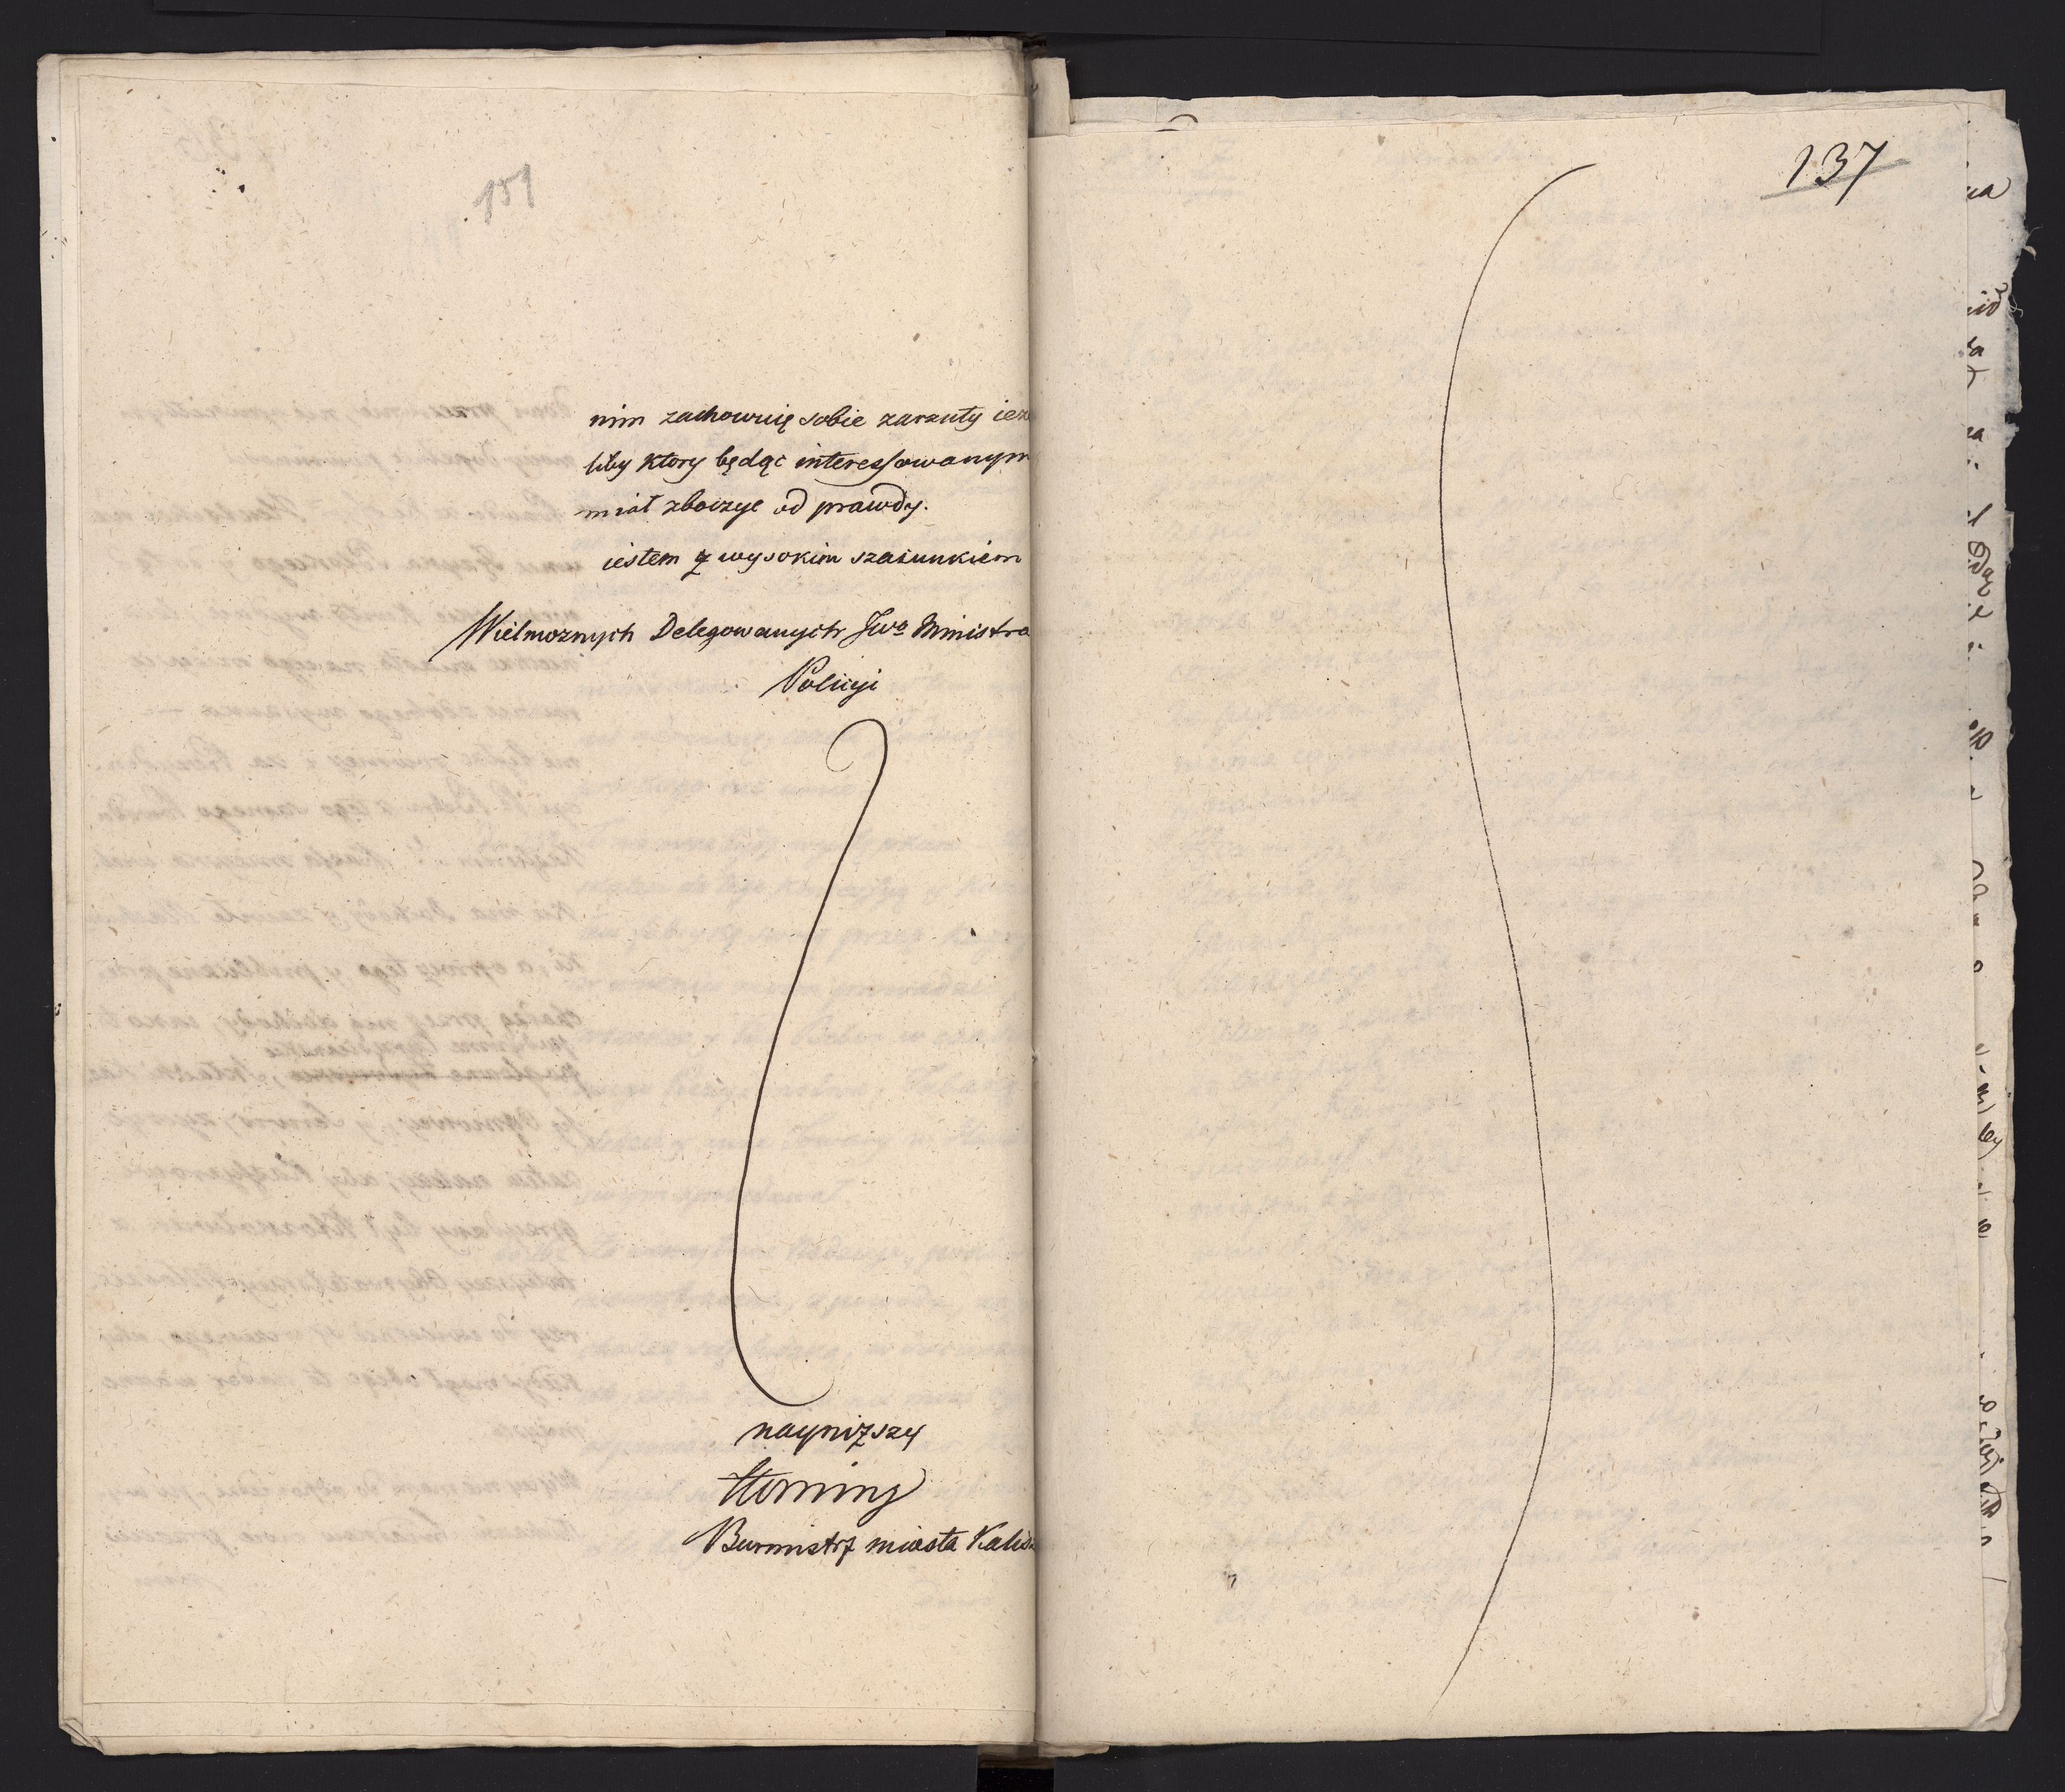 151
nim zachowuię sobie zarzuty ieże
liby ktory będąc interessowanym
miał zboczyc od prawdy.
iestem z wysokim szacunkiem
Wielmoznych Delegowanych Jwo Ministra
Policyi
nayniższy
Horning
Burmistrz miasta Kalis
137